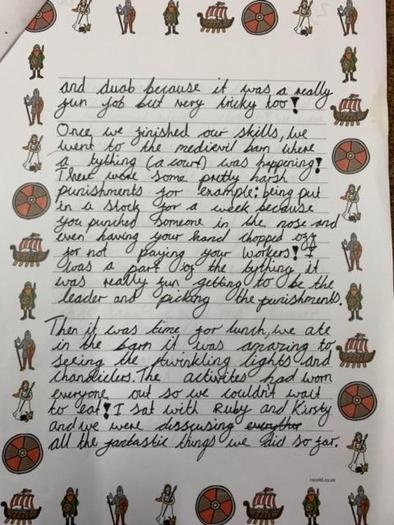 and duab because it was a really
fun job but very tricky too!
Once we finished our skills, we
went to the medievil barn where
a tything (a court) was happening!
There were some pretty harsh
punishments for example: being put
in a stock for a week because
you punched someone in the nose and
even having your hand chopped off
for not paying your workers! I
was a part of the tything it
was really fun getting to be the
leader and picking the punishments.
Then it was time for lunch, we ate
in the barn it was amazing to
seeing the twinkling lights and
chandeliers. The activites had worn
everyone out so we couldnt wait
to eat! I sat with Ruby and Kirsty
and we were disscusing
all the fantastic things we did so far.
twinkl.co.uk